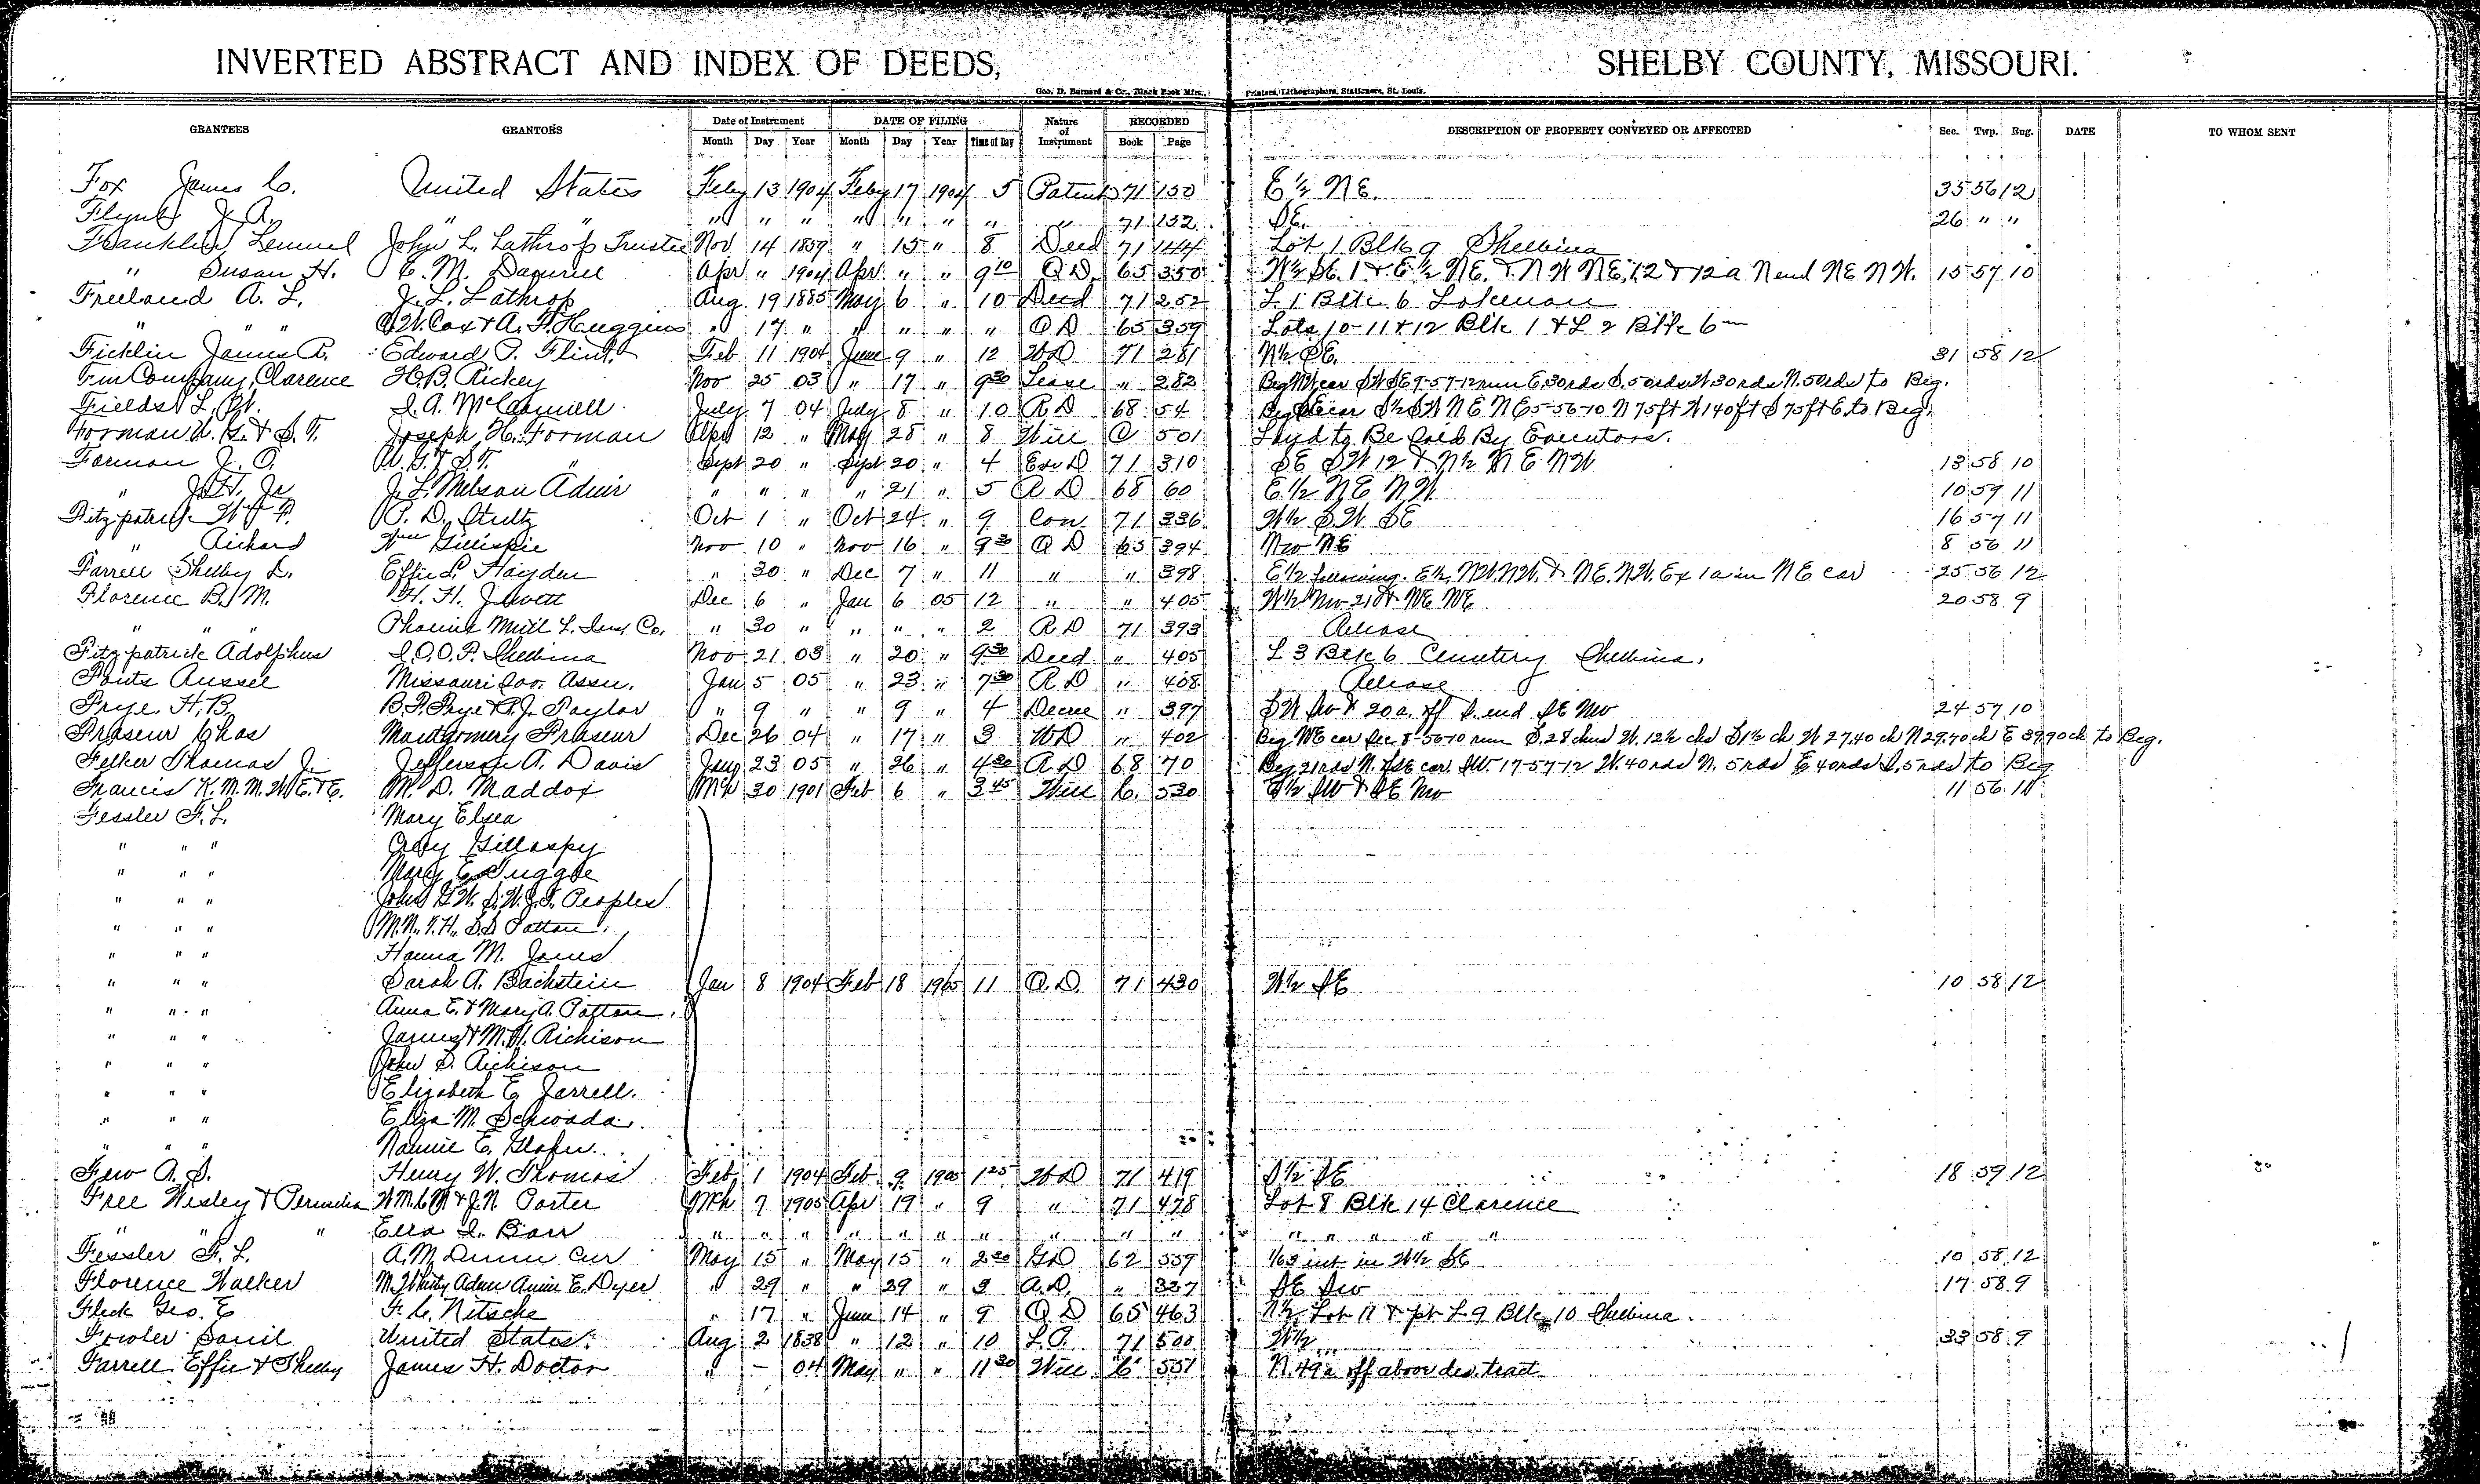 INVERTED ABSTRACT AND INDEX OF DEEDS, SHELBY COUNTY, MISSOURI.
Geo. D. Barnard & Co., Blank Book Mfrs., Printers, Lithographers, Stationers, St. Louis.
GRANTEES GRANTORS Date of Instrument DATE OF FILING Nature of Instrument RECORDED DESCRIPTION OF PROPERTY CONVEYED OR AFFECTED Sec. Twp. Rng. DATE TO WHOM SENT
Month Day Year Month Day Year Time of Day Book Page
Fox James C. United States Feby 13 1904 Feby 17 1904 5 Patent 71 150 E ½ N E. 35 56 12
Flynt J. A. " " " " " " " " " " 71 152 SE. 26 " "
Franklin Lemuel John L. Lathrop Trustee Nov 14 1859 " 15 " 8 Deed 71 144 Lot 1 Blk 9 Shelbina
" Susan H. C. M. Apr " 1904 Apr " " 9 10 Q D 65 350 W½ SE. 1 & E ½ NE. & N W NE, 12 & 12 a N end NE NW. 15 57 10
Freeland A. L. J. L. Lathrop Aug. 19 1885 May 6 " 10 Deed 71 252 L 1 Blk 6 Lakenan
" " " Cox & A. F. Huggins " 17 " " " " " Q D 65 359 Lots 10-11 & 12 Blk 1 & L 2 Blk 6 "
Ficklin James R. Edward P. Flint Feb 11 1904 June 9 " 12 WD 71 281 N½ SE. 31 58 12
Fin Company, Clarence H. B. Rickey Nov 25 03 " 17 " 9 30 Lease " 282 Beg NW cor SW SE 9-57-12 run E. 30 rds S. 50 rds W 30 rds N. 50 rds to Beg.
Fields L. July 7 04 July 8 " 10 R D 68 54 Beg cor S½ SW N E N E 5-56-10 N 75 ft W 140 ft S 75 ft E to Beg.
Forman W. G. & S. T. Joseph H. Forman Apr 12 " May 28 " 8 Will C 501 Land to Be Sold By Executors.
Forman J. O. W. G. & S. T. " Sept 20 " Sept 20 " 4 Exr D 71 310 SE SW 12 & N½ N E NW 13 58 10
" J. H. Jr J. L. Melson Admr " " " " 21 " 5 A D 68 60 E ½ NE NW 10 59 11
Fitzpatrick W. F. P. D. Stultz Oct 1 " Oct 24 " 9 Con. 71 336 W½ S. W SE 16 57 11
" Richard Wm Gillispie Nov 10 " Nov 16 " 9 30 Q D 65 394 NW NE 8 56 11
Farrell Shelby D. Effie L. Hayden " 30 " Dec 7 " 11 " " 398 E ½ following. E ½, NW. NW. & NE. NW. Ex 1a in NE cor 25 56 12
Florence B. M. H. H. Jewett Dec 6 " Jan 6 05 12 " " 405 W½ NW 21 & NE NE 20 58 9
" " " Phoenix Mutl L. Ins. Co. " 30 " " " " 2 R D 71 393 Release
Fitzpatrick Adolphus I. O. O. F. Shelbina Nov 21 03 " 20 " 9 30 Deed " 405 L 3 Blk 6 Cemetery Shelbina.
Fouts Russel Missouri Assn. Jan 5 05 " 23 " 7 30 R. D " 408 Release
Frye H. B. B. F. Frye & A. J. Taylor " 9 " " 9 " 4 Decree " 397 S W & 20 a. off S. end SE NW 24 57 10
Fraseur Chas Montgomery Fraseur Dec 26 04 " 17 " 3 WD " 402 Beg NE cor Sec 8-56-10 run S. 28 chns W. 12½ chs S 1½ ch W 27.40 ch N 29.40 ch E 39.90 ch to Beg.
Felker Thomas J. Jefferson A. Davis Jany 23 05 " 26 " 4 30 R D 68 70 Beg 21 rds N. SE cor. SW. 17-57-12 W. 40 rds N. 5 rds E 40 rds S. 5 rds to Beg
Francis K. M. M. W. E. & E. M. D. Maddox Mch 30 1901 Feb 6 " 3 45 Will C. 530 S½ SW & SE NW 11 56 11
Fessler F. L. Mary Elsea
" " " Gillaspy
" " " Mary E Tuggle
" " " John G. W. S. W. J. T. Peoples
" " " M. N. V. H. S. D Patton
" " " Hanna M. Jones
" " " Sarah A. Bachstein Jan 8 1904 Feb 18 1905 11 Q. D. 71 430 W½ SE 10 58 12
" " " Anna E. & Mary A. Patton
" " " James & M. H. Richison
" " " John D. Richison
" " " Elizabeth E. Jarrell.
" " " Eliza M. Schwada.
" " " Nannie E.
Few A. S. Henry W. Thomas Feb 1 1904 Feb 9 1905 1 25 WD 71 419 S½ SE 18 59 12
Free Wesley & Permelia Wm. C. M & J. N. Porter Mch 7 1905 Apr 19 " 9 " 71 478 Lot 8 Blk 14 Clarence
" " " Ella I. Barr " " " " " " " " " " " " " " "
Fessler F. L. A. M. Dunn Cur May 15 " May 15 " 2 30 G D 62 559 1/63 int in W½ SE 10 58 12
Florence Walker M. Whitby Admr Annie E. Dyer " 29 " " 29 " 3 A. D. " 327 SE SW 17 58 9
Fleck Geo. E F. C. Nitsche " 17 " June 14 " 9 Q D 65 463 N½ Lot 11 & pt L 9 Blk 10 Shelbina.
Fowler Danil United States. Aug 2 1838 " 12 " 10 L. P. 71 500 W½ 33 58 9
Farrell Effie & Shelby James H. Doctor " - 04 May " " 11 30 Will C 551 N. 49 a off above des. tract